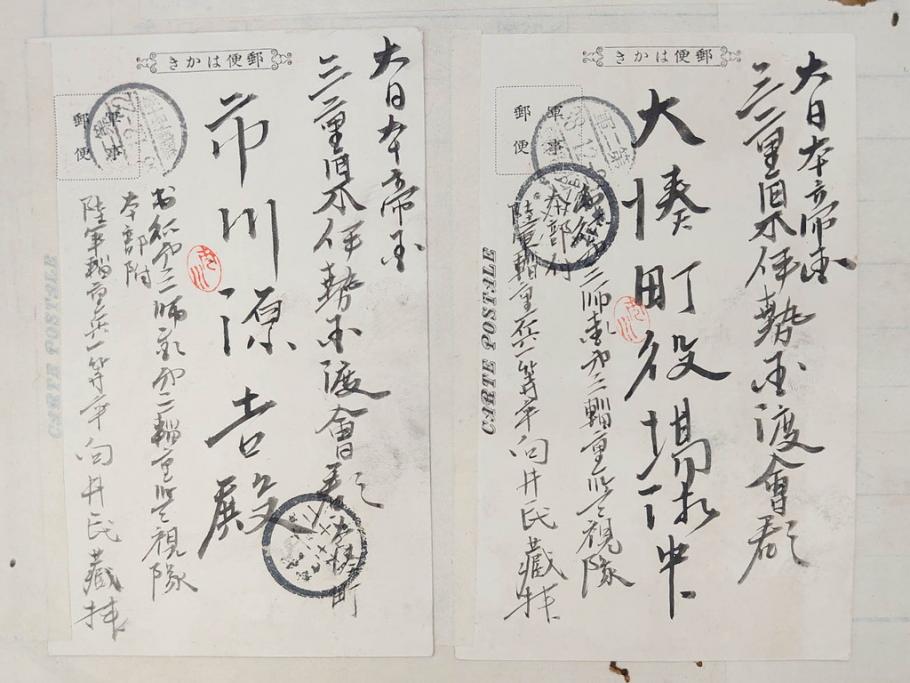 郵便はかき
軍事
郵便
大日本帝国
三重県伊勢国渡會郡
大湊町
市川源吉殿
第三師団第二輜重監視隊
本部附
陸軍輜重兵一等卒向井民藏拝
CARTE POSTALE
郵便はかき
軍事
郵便
大日本帝国
三重県伊勢国渡會郡
大湊町役場御中
第三師団第二輜重監視隊
本部付
陸軍輜重兵一等卒向井民藏拝
CARTE POSTALE